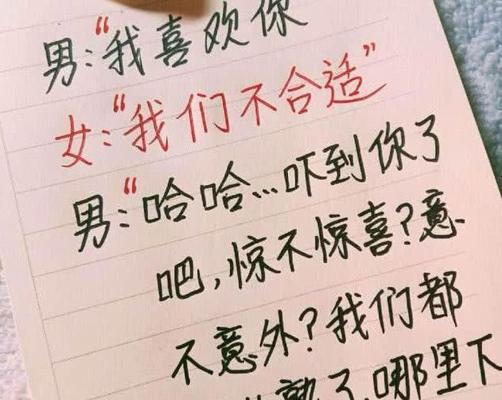 男:“我喜欢你
女:“我们不合适”
男:“哈哈...吓到你了
吧,惊不惊喜?意
不意外?我们都
熟了,哪里下